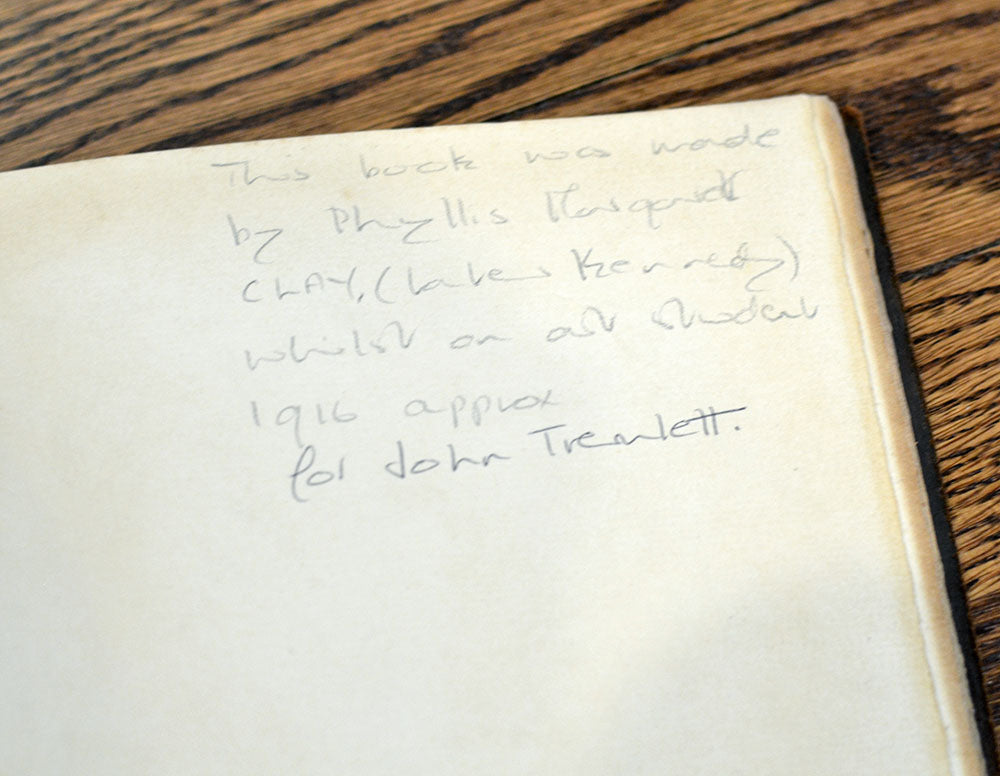 This book was made
by Phyllis Margaret
CLAY, (later Kennedy)
whilst an art student
1916 approx
for John Tremlett.